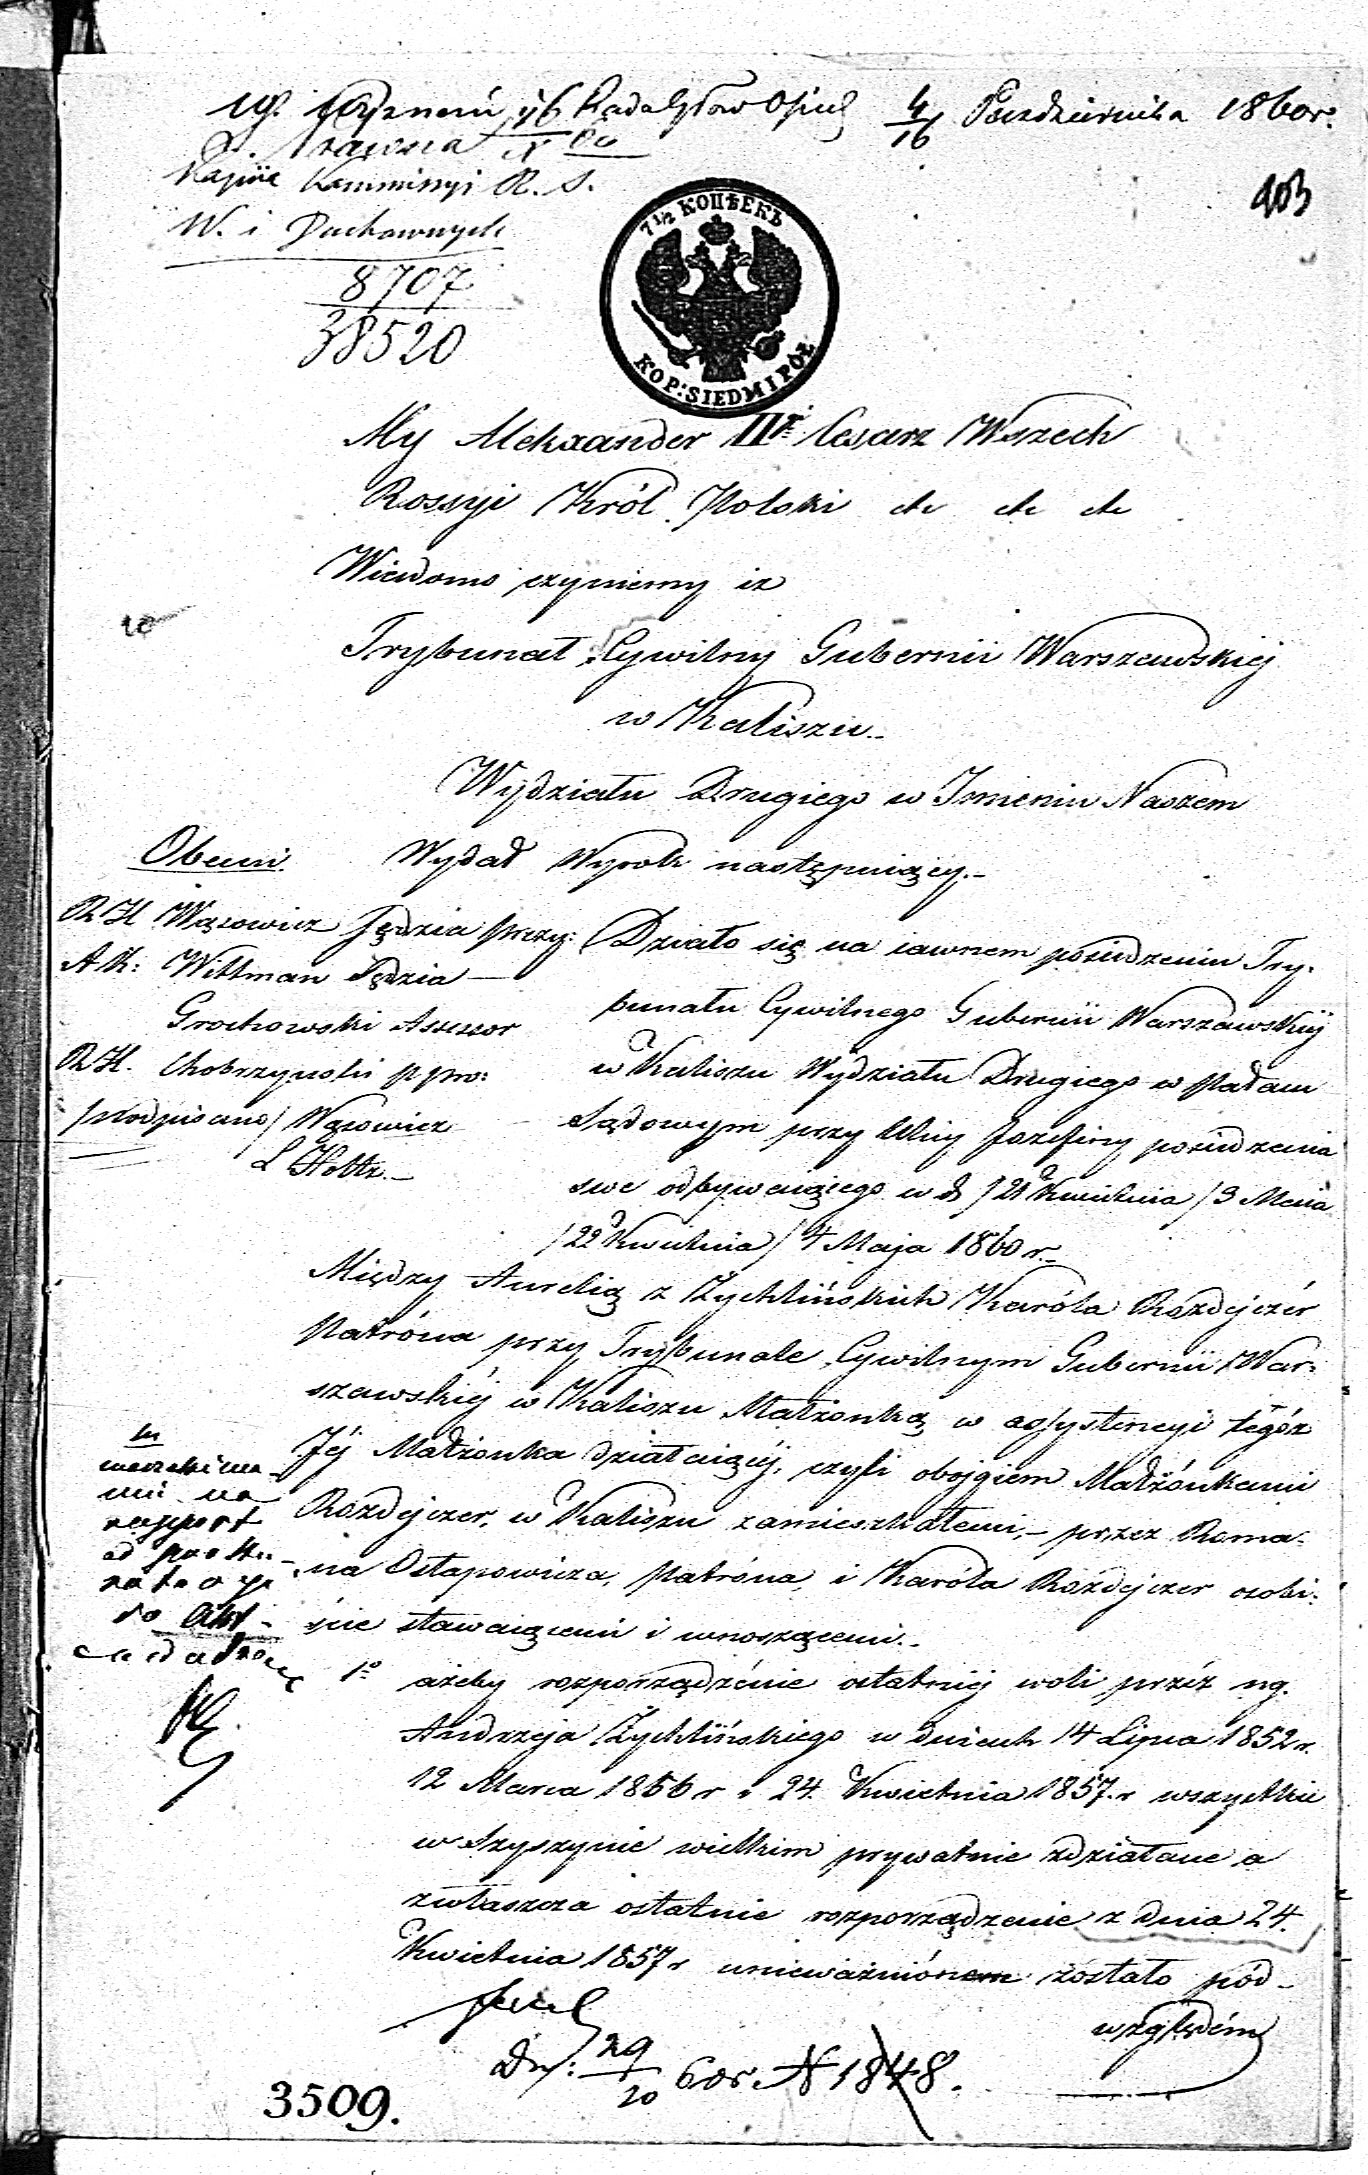 4/16 Pazdziernika 1860 r.
403
Kopiia Kommissyi R. S.
W. i Duchownych
8707
38520
7 1/2 КОПѢЕКЪ
KOP: SIEDM I PÓŁ
My Alexander IIi Cesarz Wszech
Rossyi Król Polski etc etc etc
Wiadomo czyniemy iz
Trybunał Cywilny Gubernii Warszawskiej
w Kaliszu.-
Wydziału Drugiego w Imieniu Naszem
Wydał Wyrok następuiący.-
Obecni.
R H Wąsowicz Sędzia prezy:
A. K: Wittman Sędzia —
Grochowski Assessor
R H. Chobrzyński p pro:
/podpisano/ Wąsowicz
L Holtz.-
Działo się na iawnem posiedzeniu Try-
bunału Cywilnego Gubernii Warszawskiéj
w Kaliszu Wydziału Drugiego w Pałacu
Sądowym przy Ulicy Jozefiny posiedzenia
swe odbywaiącego w d /21 Kwietnia / 3 Maia
/22 Kwietnia / 4 Maja 1860 r.-
Między Aurelią z Zychlińskich Karóla Rozdejczér
Patróna przy Trybunale Cywilnym Gubernii War-
szawskiéj w Kaliszu Małżonką w assystencyi tegóz
Jéj Małżonka działaiącéj, czyli obojgiem Małżónkami
Rozdejczer, w Kaliszu zamieszkałemi,- przez Roma-
na Ostapowicza, Patróna, i Karóla Rozdejczer osobi-
ście stawaiącemi i wnoszącemi.-
1o ażeby rozporządzénie ostatniéj woli przéz ng.
Andrzeja Zychlińskiego w dniach 14 Lipca 1852 r.
12 Marca 1856 r i 24. Kwietnia 1857 r wszystkie
w Szyszynie wielkim prywatnie zdziałane a
zwłaszcza ostatnie rozporządzenie z dnia 24.
Kwietnia 1857 r unieważniónem zostało pód
względém
na
rapport
do Akt
29/20 60 r. N 1848.
3509.